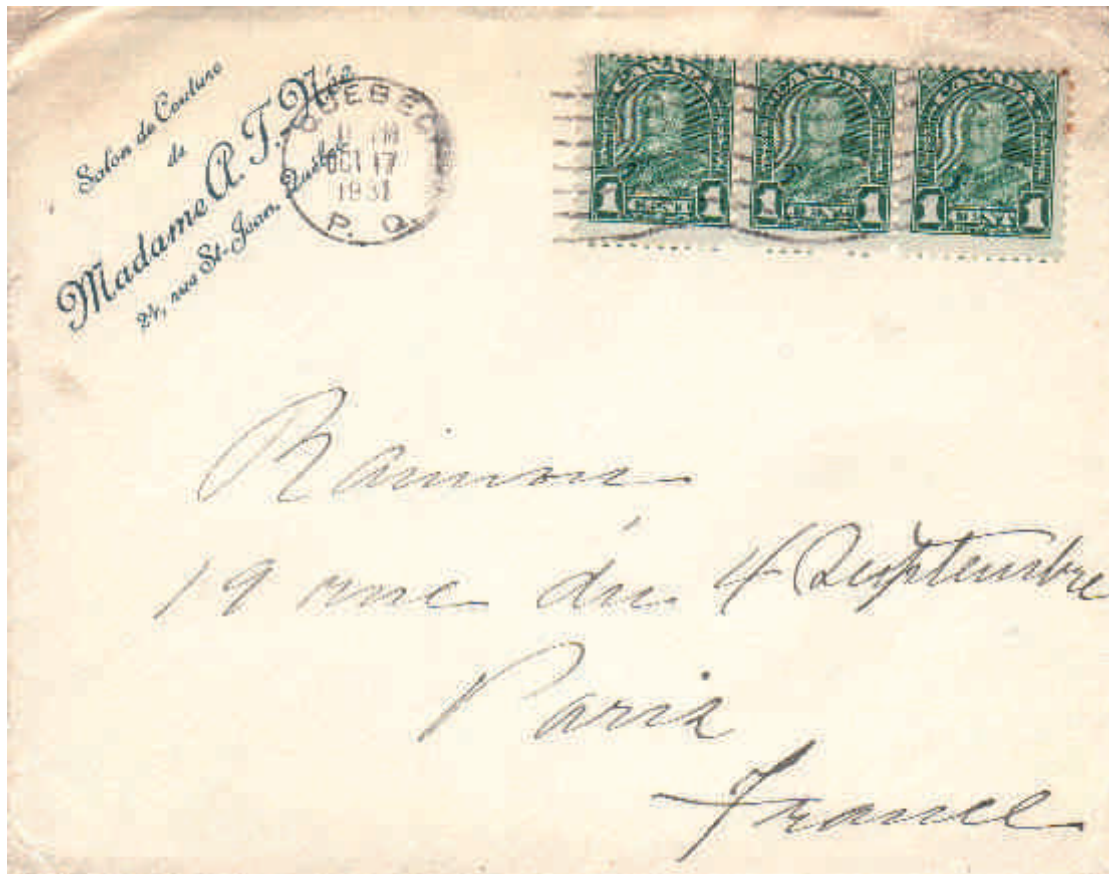 Salon de Couture
de
Madame A. T. Née
24, rue St-Jean, Québec
QUEBEC
OCT 17
1931
P. Q.
CANADA CANADA CANADA
1 CENT 1 1 CENT 1 1 CENT 1
19 rue du 4 Septembre
Paris
France